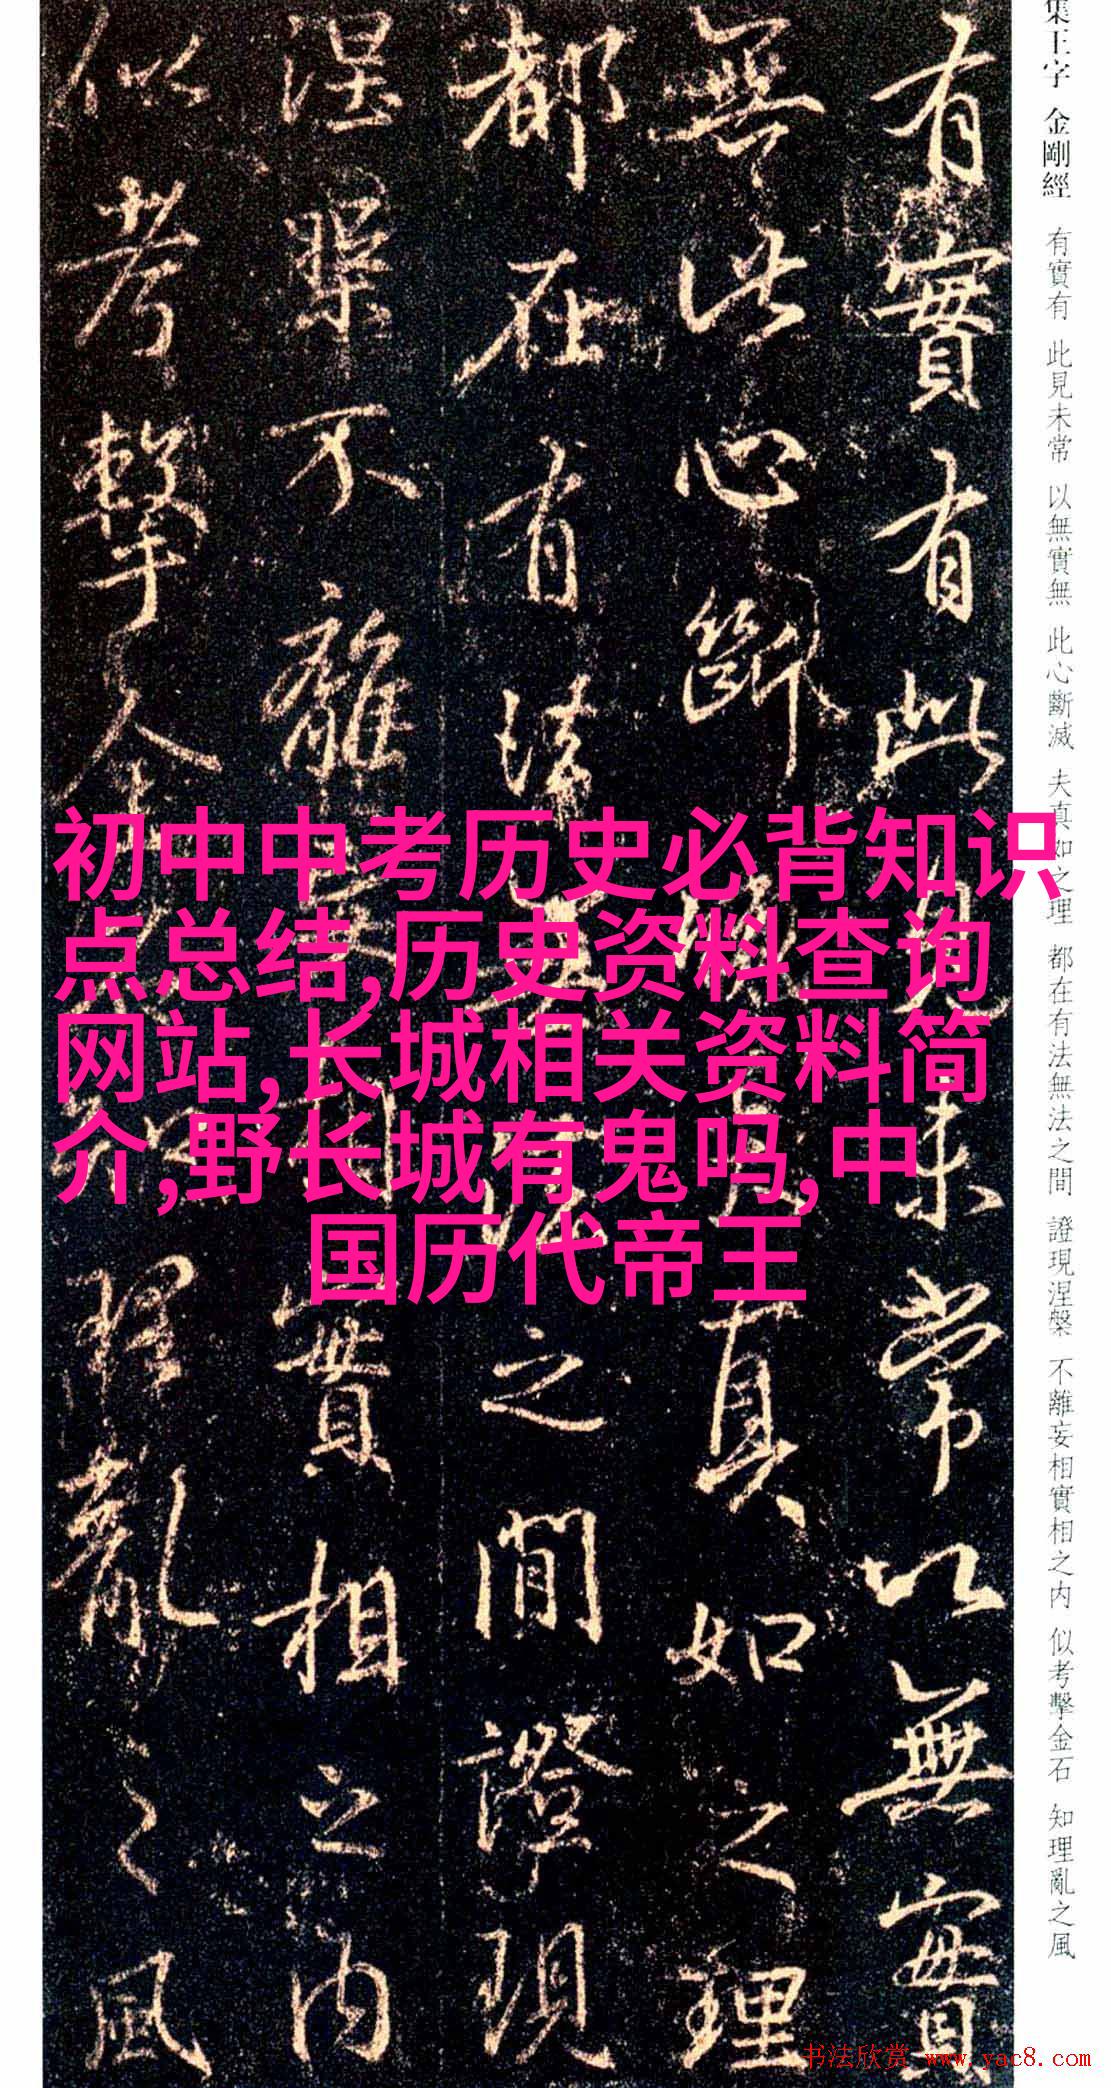 集王字 金剛經 有實有 此見未常 以無實無 此心斷滅 夫真如之理 都在有法無法之間 證現涅槃 不離妄相實相之内 似考擊金石 知理亂之風
有實有此見未常以無實
無此心斷滅夫真如之理
都在有法無法之間證現
涅槃不離妄相實相之内
似考擊金石知理亂之風
初中中考历史必背知识
点总结,历史资料查询
网站,长城相关资料简
介,野长城有鬼吗,中
国历代帝王
书法欣赏 www.yac8.com